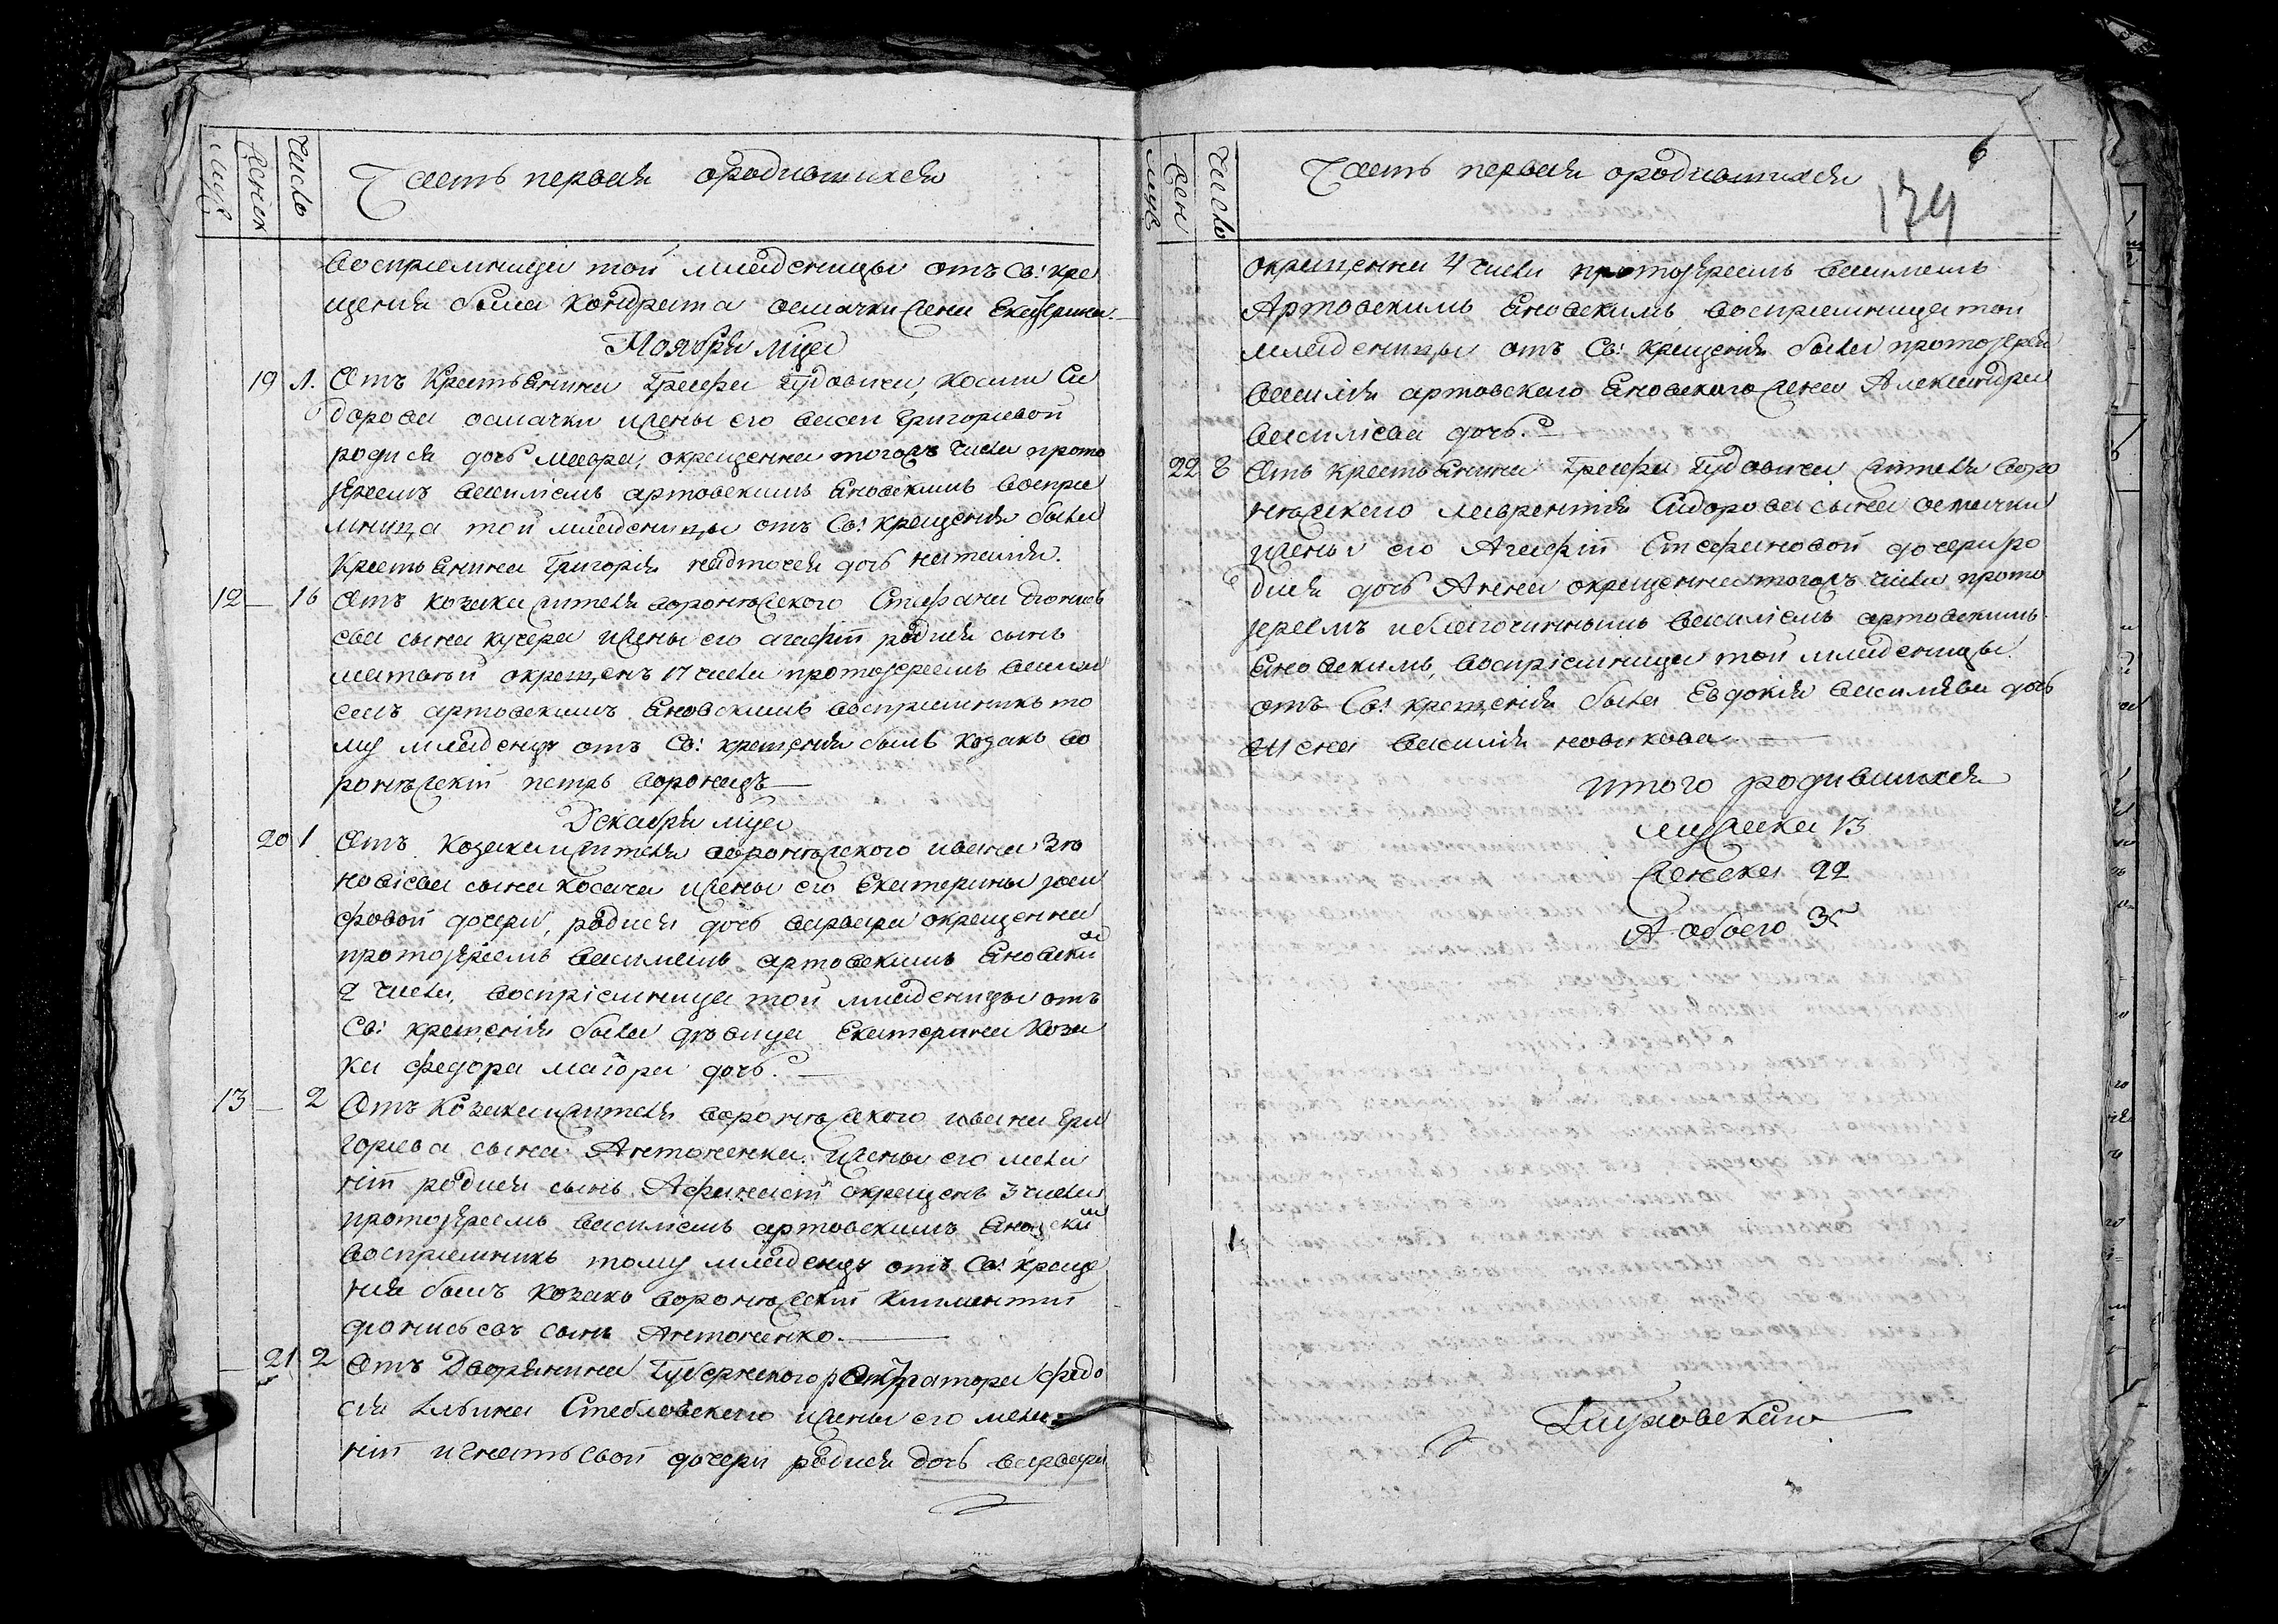 муж
женск
число
Часть первая ородившихся
воспріемница той младеницы отъ Св: кре
щенія была Кондрата осмачки жена Екатерина.
Ноября мца
19 Л. Отъ Крестьянина Графа Гудовича, Космы Си
дорова осмачки ижены его Григоріевой
родися дочь Мавра, окрещенна тогожъ числа прото
іереемъ василіемъ артовскимъ Яновскимъ воспріе
мница той младеницы отъ Св: крещенія была
Крестьянина Григорія дочь наталія.
12 — 16 Отъ козака жителя воронѣжского Стефана Діонисі
ева сына кучера ижены его агафіи родися сынъ
матвѣй окрещенъ 17 числа протоіереемъ васили
емъ артовскимъ Яновскимъ воспріемникъ то
му младенцу отъ Св: крещенія былъ козакъ во
ронѣжскій петръ воронецъ —
Декабря мца
20 1 Отъ козака жителя воронѣжского ивана Зѣ
новіева сына косача ижены его Екатерины іоси
фовой дочери, родися дочь варвара окрещенна
протоіереемъ василіемъ артовскимъ Яновскимъ
2 числа, воспріемница той младеницы отъ
Св: крещенія была дѣвица Екатерина Коза
ка федора маіора дочь. —
13 — 2 Отъ Козака жителя воронѣжского ивана Гри
горьева сына Антоненка ижены его мела
ніи родися сынъ Афанасій окрещенъ 3 числа
протоіереемъ василіемъ артовскимъ Яновскимъ
воспріемникъ тому младенцу отъ Св: креще
нія былъ козакъ воронѣжскій Климентій
діонисьевъ сынъ Антоненко. —
— 21 2 Отъ Дворянина Губернского федо
сія Стебловского ижены его мела
ніи игнатьевой дочери родися дочь варвара
муж
жен
число
Часть первая ородившихся
6
174
окрещенна 4 числа протоіереемъ василіемъ
Артовскимъ Яновскимъ, воспріемница той
младеницы отъ Св: крещенія была протоіерея
василія артовского Яновского жена Александра
василіева дочь. —
22 Отъ крестьянина Графа Гудовича жителя воро
нѣжского лаврентія Сидорова сына осмачки
ижены его Агафіи Стефановой дочери ро
дися дочь Анна окрещенна тогожъ числа прото
іереемъ иблагочиннымъ василіемъ артовскимъ
Яновскимъ, воспріемница той младеницы
отъ Св: крещенія была Евдокія василіева дочь
жена василія новикова —
Итого родившихся
мужеска 13
женска 22
А обоего 35